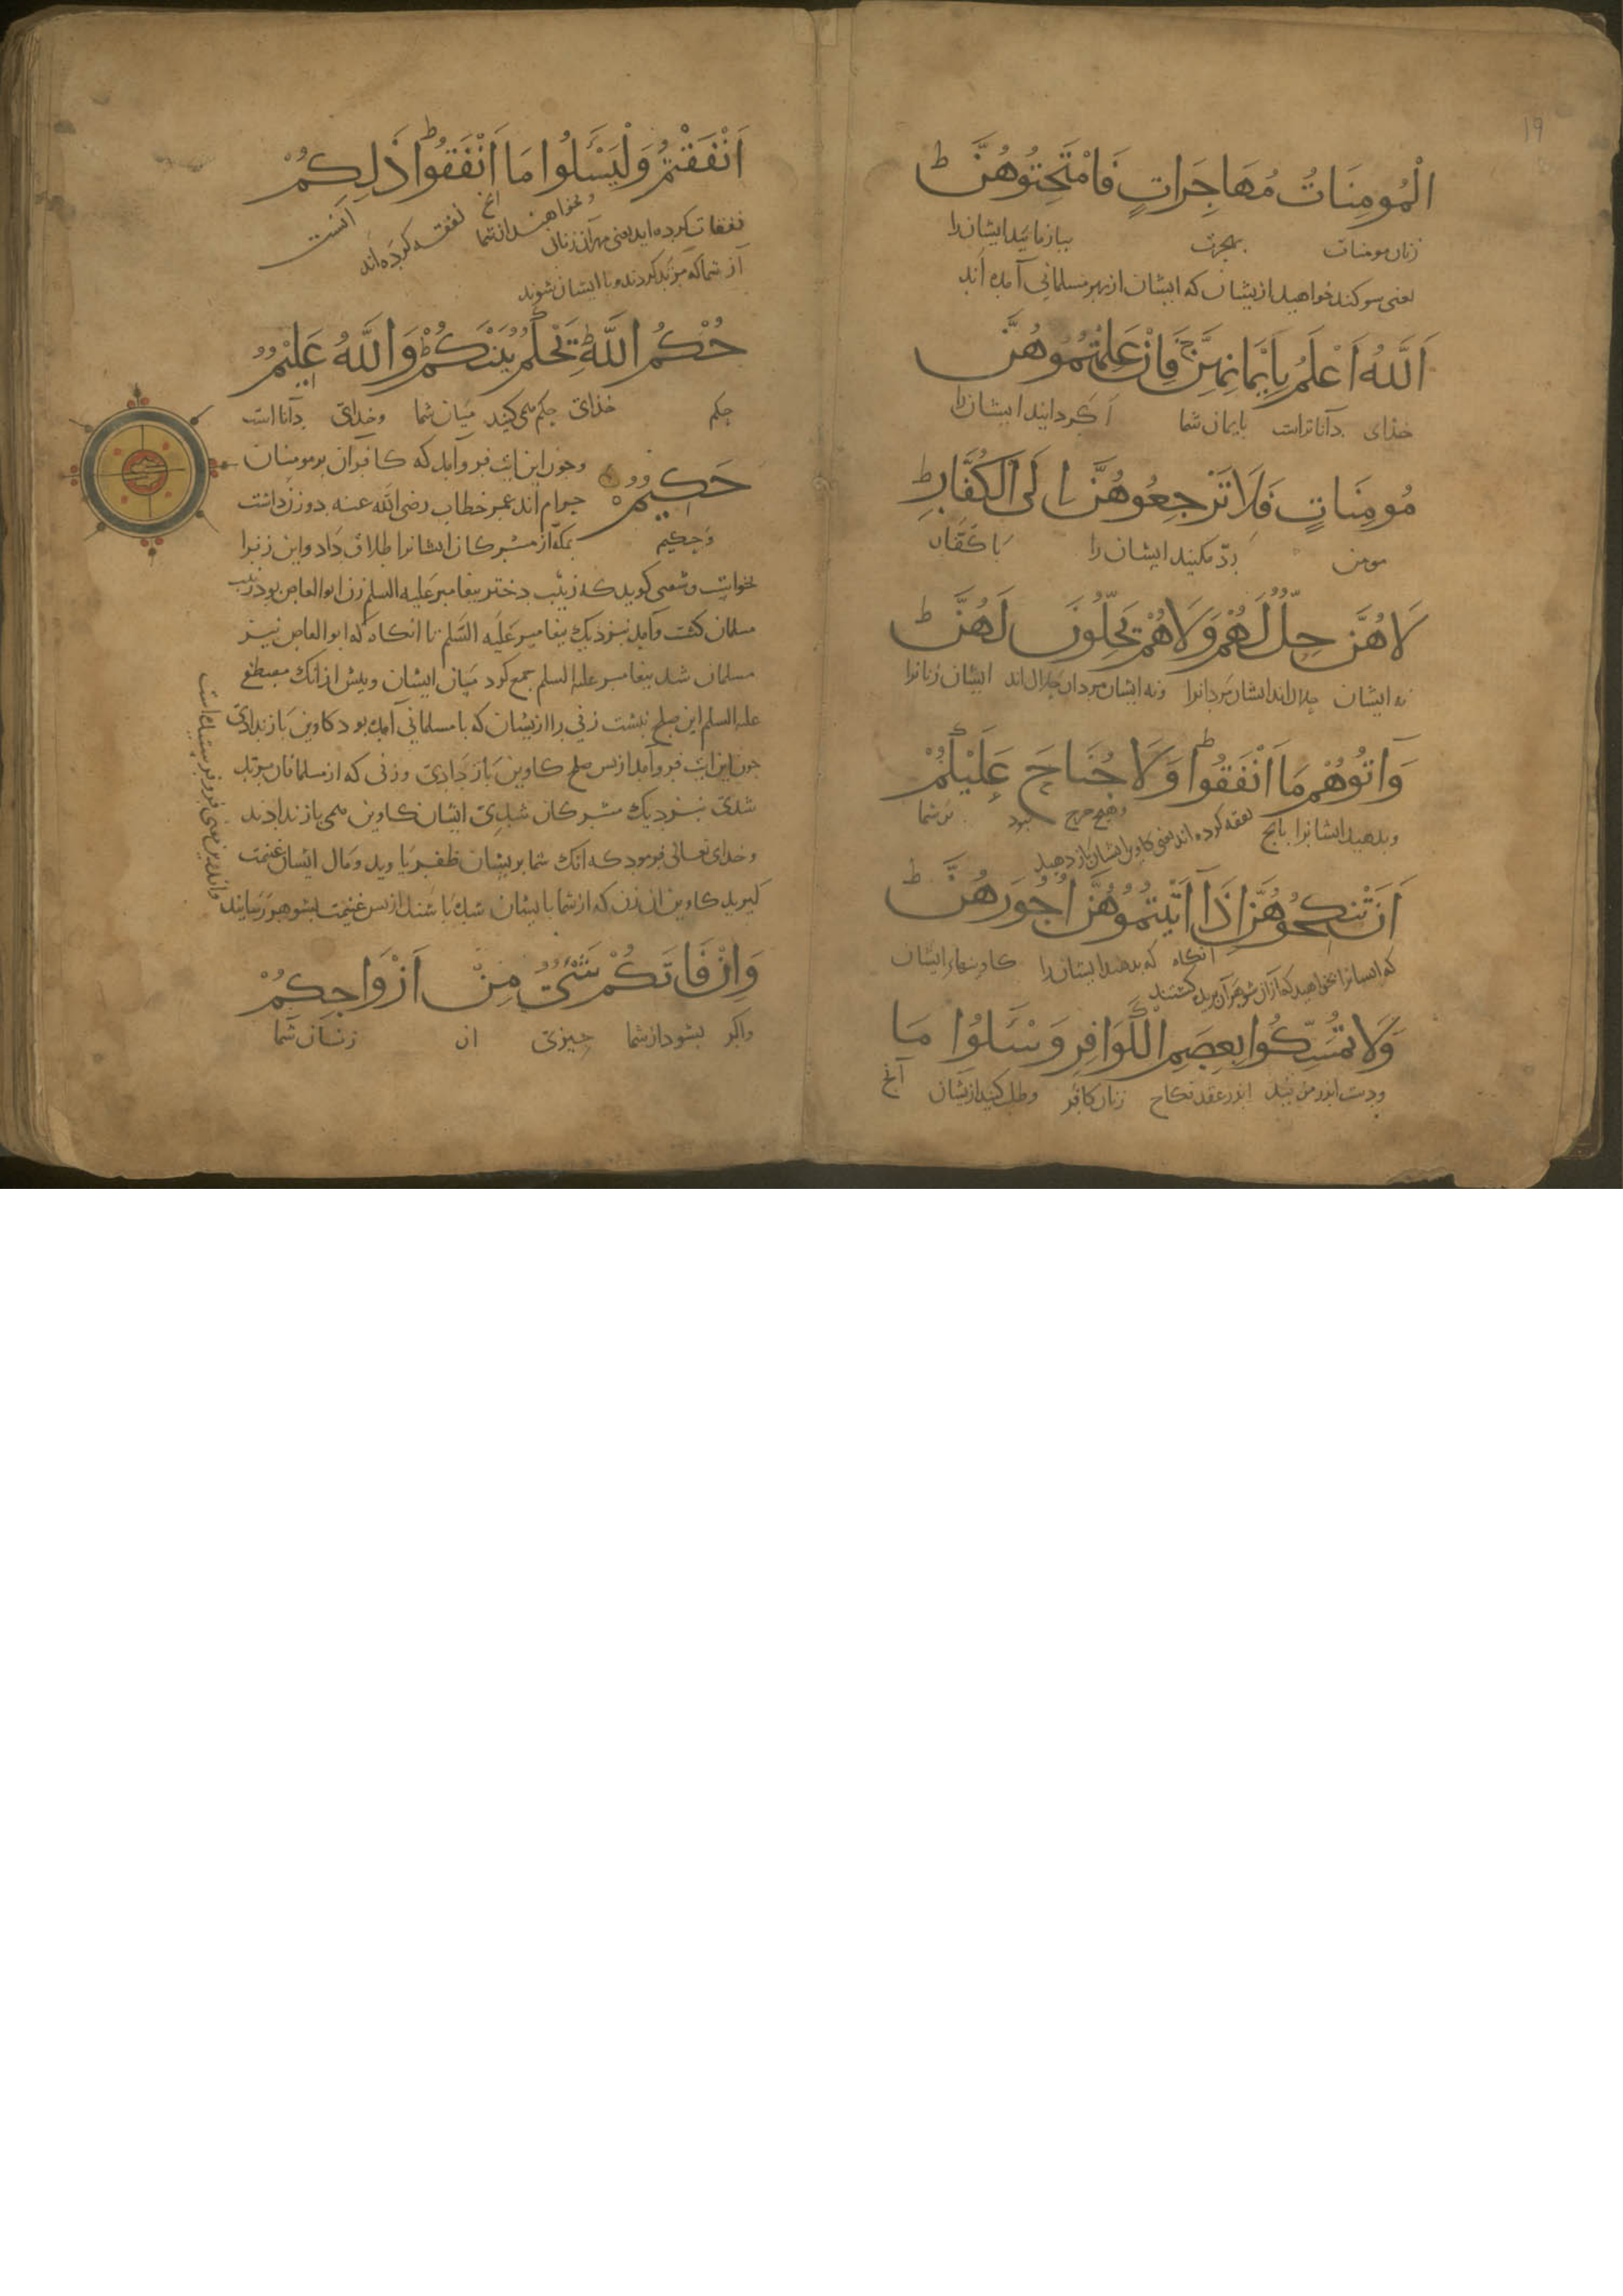 ۱۹
الْمُومِنَاتُ مُهَاجِرَاتٍ فَامْتَحِنُوهُنَّ ط
زنان مومنات بهجرت بیازمایید ایشانرا
یعنی سوکند خواهید ازیشان که ایشان از بهر مسلمانی آمده اند
اَللّٰهُ اَعْلَمُ بِاِيمَانِهِنَّ ج فَاِنْ عَلِمْتُمُوهُنَّ
خذای داناتراست بایمان شما اکر دانید ایشان را
مُومِنَاتٍ فَلَا تَرْجِعُوهُنَّ اِلَى الْكُفَّارِ ط
مومن ردّ مکنید ایشان را با کفّار
لَا هُنَّ حِلٌّ لَهُمْ وَلَا هُمْ يَحِلُّونَ لَهُنَّ ط
نه ایشان حلال اند ایشان مردانرا ونه ایشان مردان حلال اند ایشان زنانرا
وَآتُوهُمْ مَا اَنْفَقُوا ط وَلَا جُنَاحَ عَلَيْكُمْ
وبدهید ایشانرا بانج نفقه کرده اند یعنی کاوین ایشان باز دهید وهیچ حرج نبود بر شما
اَنْ تَنْكِحُوهُنَّ اِذَا آتَيْتُمُوهُنَّ اُجُورَهُنَّ ط
که ایشانرا بخواهید که از آن شوهران بریده کشتند انکاه که بدهید ایشان را کاوینهاء ایشان
وَلَا تُمَسِّكُوا بِعِصَمِ الْكَوَافِرِ وَسْـَٔلُوا مَا
ودست اندر مزنید اندر عقد نکاح زنان کافر وطلب کنید ازیشان آنج
اَنْفَقْتُمْ وَلْيَسْـَٔلُوا مَا اَنْفَقُوا ط ذٰلِكُمْ
نفقات کرده اید یعنی مهر آن زنان وبخواهند از شما آنج نفقه کرده اند آنست
از شما که مرتد کردند وبا ایشان شوند
حُكْمُ اللّٰهِ ط يَحْكُمُ بَيْنَكُمْ ط وَاللّٰهُ عَلِيمٌ
حکم خذای حکم می کند میان شما وخدای داناست
حَكِيمٌ وجون این ایت فرو آمد که کافران بر مومنان
حرام اند عمر خطاب رضی الله عنه دو زن داشت
وحکیم بمکه از مشرکان ایشانرا طلاق داد واین زنرا
بخواست وشعبی کوید که زینب دختر پیغامبر علیه السلم زن ابوالعاص بود زینب
مسلمان کشت وآمد بنزدیک پیغامبر علیه السلم تا انکاه که ابوالعاص نیز
مسلمان شد پیغامبر علیه السلم جمع کرد میان ایشان وپیش از انک مصطفی
علیه السلم این صلح نبشت زنی را ازیشان که با مسلمانی آمده بود کاوین باز ندادی
جون این ایت فرو آمد از پس صلح کاوین باز دادی وزنی که از مسلمانان مرتد
شدی بنزدیک مشرکان شدی ایشان کاوین می باز ندادند
وخدای تعالی فرمود که انک شما بریشان ظفر یاوید ومال ایشان غنیمت
کیرید کاوین ان زن که از شما با یشان شده باشند از پس غنیمت بشوهر رسانید
وَاِنْ فَاتَكُمْ شَيْءٌ مِنْ اَزْوَاجِكُمْ
واکر بشود از شما چیزی از زنان شما